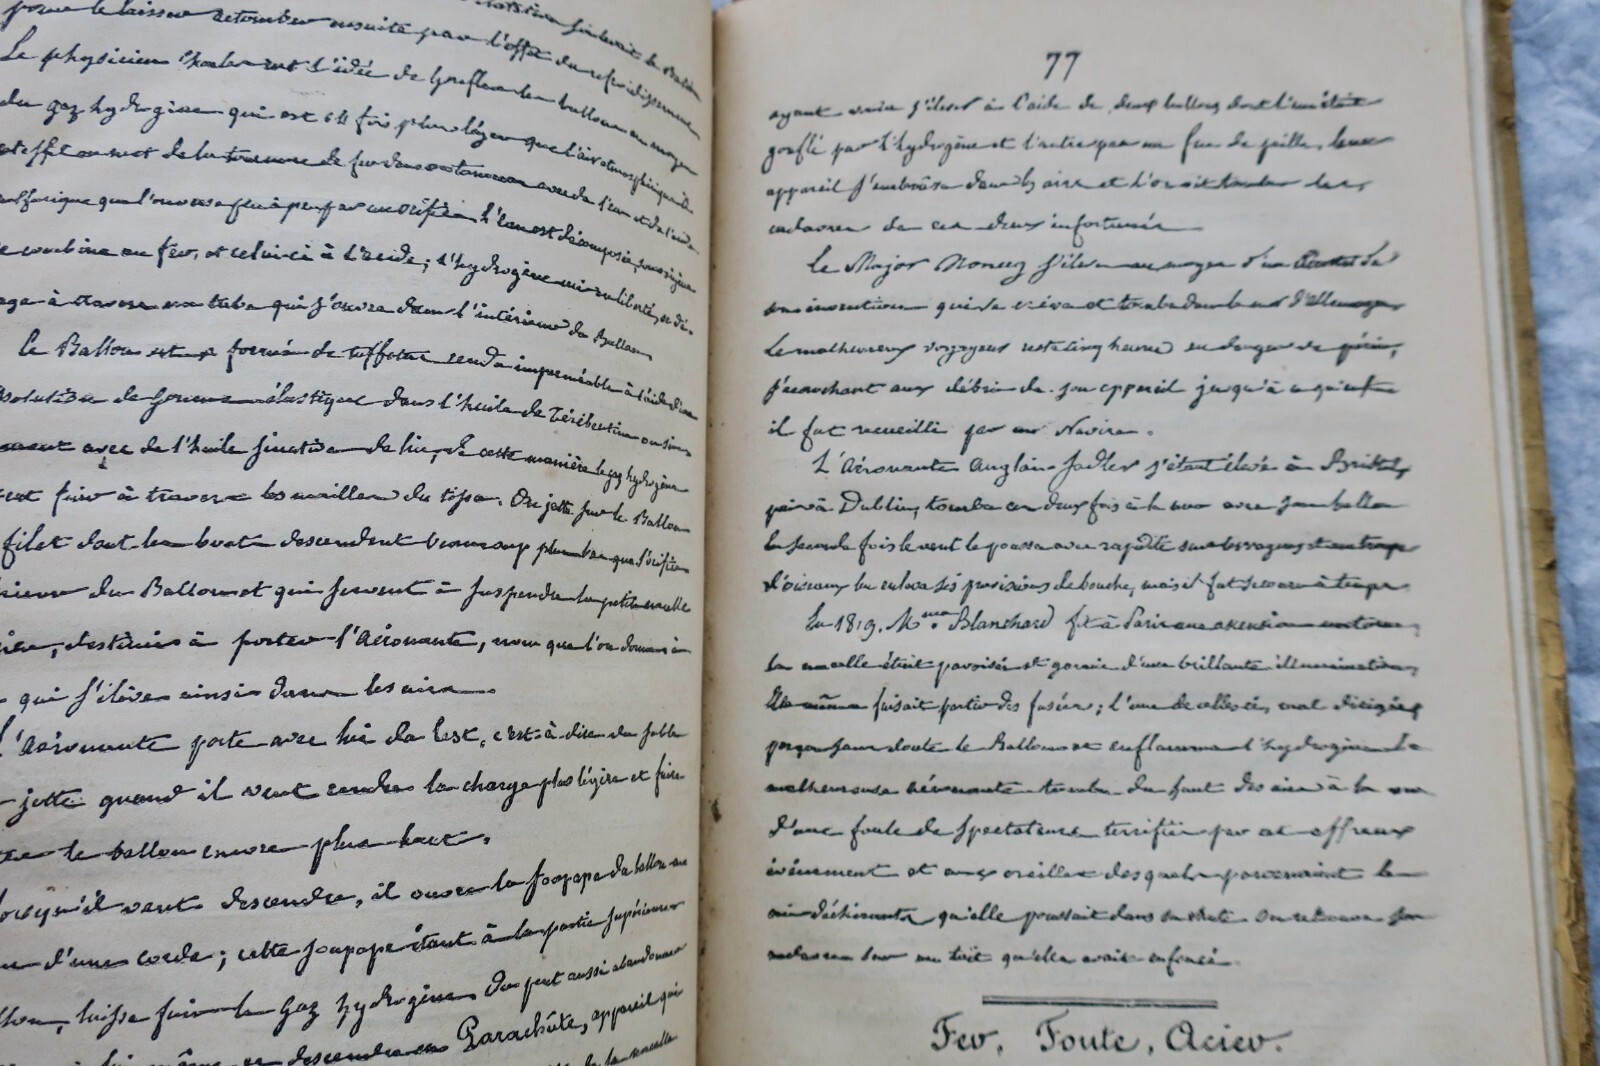 pour le laisser retomber ensuite par l'effet du refroidissement
Le physicien Charles eut l'idée de gonfler les ballons au moyen
du gaz hydrogène qui est 14 fois plus léger que l'air atmosphérique
effet on met de la tournure de fer dans un tonneau avec de l'eau et de l'acide
sulfurique que l'on verse peu à peu par un orifice. L'eau est décomposée, son oxigène
se combine au fer, et celui-ci à l'acide; l'hydrogène mis en liberté, se dé-
gage à travers un tube qui s'ouvre dans l'intérieur du Ballon,
Le Ballon est formé de taffetas rendu imperméable à l'aide d'une
solution de gomme élastique dans l'huile de Térébentine ou
avec de l'huile siccative de lin, de cette manière le gaz hydrogène
fuir à travers les mailles du tissu. On jette sur le Ballon
filet dont les bouts descendent beaucoup plus bas que l'orifice
du Ballon et qui servent à suspendre la petite nacelle
destinée à porter l'Aéronaute, nom que l'on donne à
qui s'élève ainsi dans les airs.
L'Aéronaute porte avec lui du lest, c'est-à-dire du sable
jette quand il veut rendre la charge plus légère et faire
le ballon encore plus haut.
Lorsqu'il veut descendre, il ouvre la soupape du ballon au
d'une corde; cette soupape étant à la partie supérieure
laisse fuir le Gaz hydrogène. On peut aussi abandonner
même et descendre en Parachûte, appareil qui
de la nacelle
77
ayant voulu s'élever à l'aide de deux ballons dont l'un était
gonflé par l'hydrogène et l'autre par un feu de paille, leur
appareil s'embrâsa dans les airs et l'on vit tomber les
cadavres de ces deux infortunés
Le Major Money s'éleva au moyen d'un
son invention qui se creva et tomba dans la mer d'Allemagne
Le malheureux voyageur resta cinq heures en danger de périr,
s'accrochant aux débris de son appareil jusqu'à ce qu'enfin
il fut recueilli par un Navire.
L'Aéronaute Anglais Sadler s'étant élevé à Bristol,
puis à Dublin, tomba ces deux fois à la mer avec son ballon
la seconde fois le vent le poussa avec rapidité sur les vagues et une troupe
d'oiseaux lui enleva ses provisions de bouche, mais il fut secouru à temps
En 1819. Mme. Blanchard fit à Paris une ascension nocturne,
la nacelle était pavoisée et garnie d'une brillante illumination,
Elle même faisait partir des fusées; l'une de celles-ci, mal dirigée
perça sans doute le Ballon et enflamma l'hydrogène. La
malheureuse aéronaute tomba du haut des airs à la vue
d'une foule de spectateurs terrifiés par cet affreux
évènement et aux oreilles desquels parvenaient les
cris déchirants qu'elle poussait dans sa chute. On retrouva son
cadavre sur un toit qu'elle avait enfoncé.
Fer, Fonte, Acier.